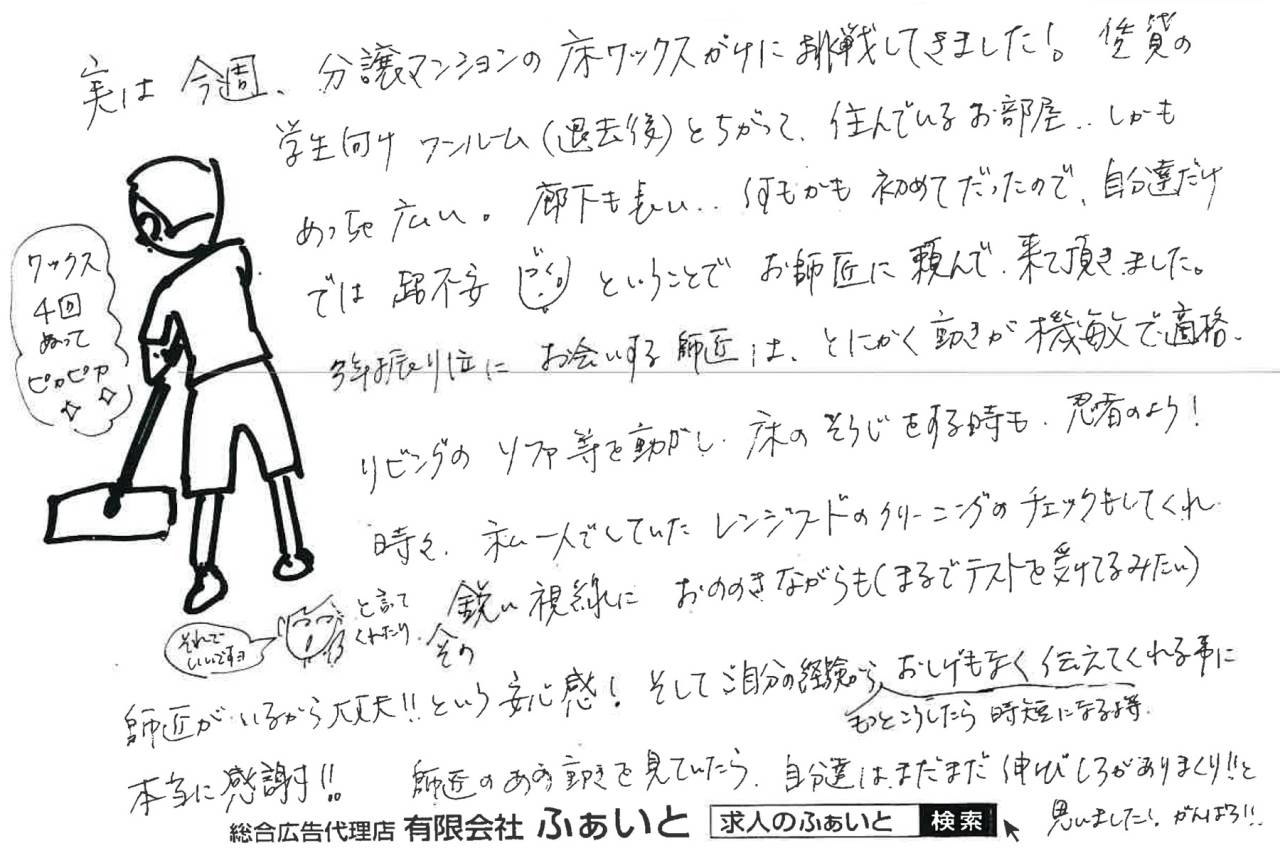 実は 今週、分譲マンションの床ワックスがけに挑戦してきました!。賃貸の
学生向けワンルーム(退去後)とちがって、住んでいるお部屋..しかも
めっちゃ広い。廊下も長い..何もかも初めてだったので、自分達だけ
では超不安 ということでお師匠に頼んで、来て頂きました。
振り位にお会いする師匠は、とにかく動きが機敏で適格、
リビングのソファ等を動かし、床のそうじをする時も、忍者のよう!
時々、私一人でしていたレンジフードのクリーニングのチェックもしてくれ
その鋭い視線におののきながらも(まるでテストを受けてるみたい)
それで
いいですヨ
と言って
くれたり、
師匠がいるから大丈夫!!という安心感!そしてご自分の経験から、おしげもなく伝えてくれる事に
もっとこうしたら時短になるよ等
本当に感謝!! 師匠のあの動きを見ていたら、自分達はまだまだ伸びしろがありまくり!!と
思いました!がんばろう!!
ワックス
4回
ぬって
ピカピカ
総合広告代理店 有限会社 ふぁいと 求人のふぁいと 検索